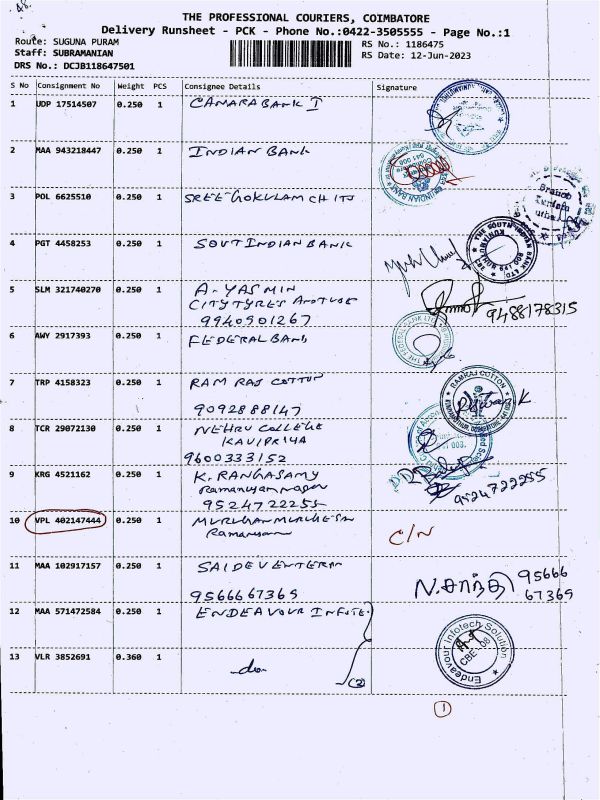 THE PROFESSIONAL COURIERS, COIMBATORE
Delivery Runsheet - PCK - Phone No.:0422-3505555 - Page No.:1
Route: SUGUNA PURAM RS No.: 1186475
Staff: SUBRAMANIAN RS Date: 12-Jun-2023
DRS No.: DCJB118647501
S No Consignment No Weight PCS Consignee Details Signature
1 UDP 17514507 0.250 1 CANARA BANK I
2 MAA 943218447 0.250 1 INDIAN BANK
3 POL 6625510 0.250 1 SREE GOKULAM CHITS
4 PGT 4458253 0.250 1 SOUT INDIAN BANK
THE SOUTH INDIAN BANK LTD.
5 SLM 321740270 0.250 1 A. YASMIN
CITY TYRES
9940901267 9488178315
6 AWY 2917393 0.250 1 FEDERAL BANK
THE FEDERAL BANK LTD
7 TRP 4158323 0.250 1 RAM RAJ COTTON
RAMRAJ COTTON
9092888147
8 TCR 29072130 0.250 1 NEHRU COLLEGE
KAVIPRIYA
9600333152
9 KRG 4521162 0.250 1 K. RANGASAMY
Ramanujam nagar
9524722255 9524722255
10 VPL 402147444 0.250 1 MURUGAN MURUGESAN C/N
11 MAA 102917157 0.250 1 SAI DEV
N. சாந்தி 95666
67369
9566667369
12 MAA 571472584 0.250 1 ENDEAVOUR INFOTE.
Endeavour Infotech Solution
CBE-08
13 VLR 3852691 0.360 1 -do-
(2)
1